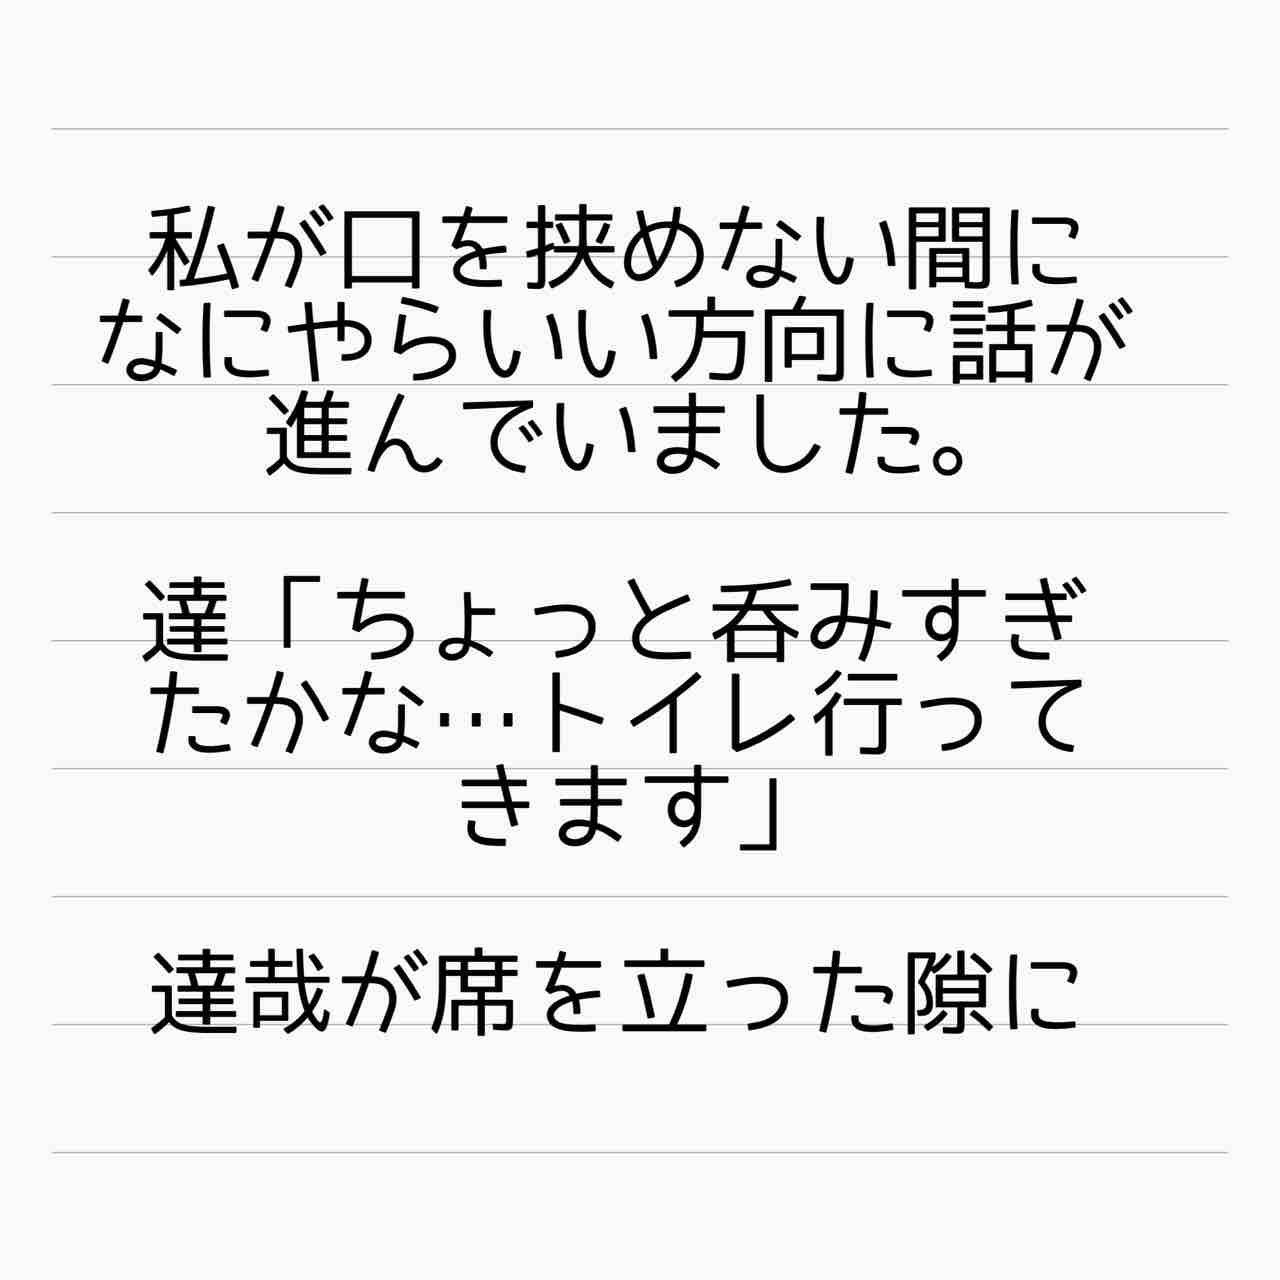 私が口を挟めない間に
なにやらいい方向に話が
進んでいました。
達「ちょっと呑みすぎ
たかな…トイレ行って
きます」
達哉が席を立った隙に